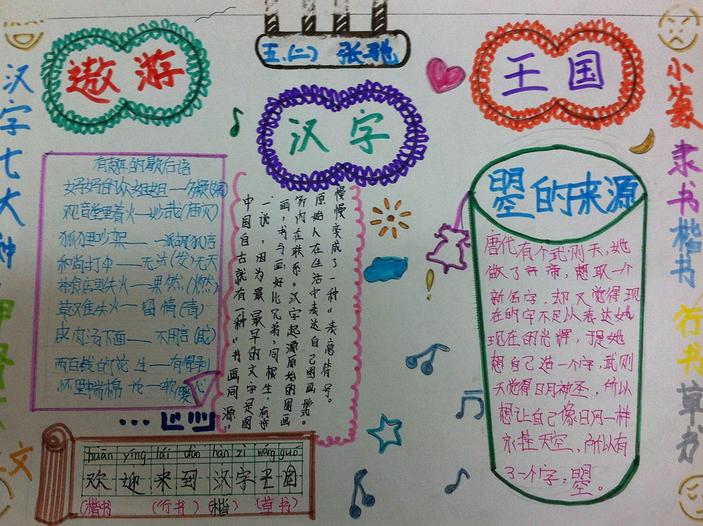 五.(二) 张
遨游
汉字
王国
汉字七大种:甲骨文
文
小篆隶书楷书行书草书
有趣的歇后语
观音堂里着火—妙哉(庙灾)
狐狸吵架——一派胡言
和尚打伞——无法(发)无天
失火—果然(燃)
草堆失火—留情(青)
皮肉汤下面——不用言(盐)
两百钱的花生—有得剥
怀里揣棉花—软心
慢慢变成了一种"表意符号。
原始人在生活中表达自己图画形。
行内在联系,汉字起源原始的图画
画,书与画好比兄弟,同根生,有
一说,因为最最早的文字是图
中国自古就有一种"书画同源"
曌的来源
唐代有个武则天,她
做了皇帝,想取一个
新名字,却又觉得现
在的字不足以表达她
现在的光辉,于是她
想自己造一个字,武则
天觉得日月神圣,所以
想让自己像日月一样
永挂天空,所以有
了一个字:曌。
huān yíng lái dào hàn zì wáng guó
欢迎来到汉字王国
(楷书 (行书)(楷)(草书)